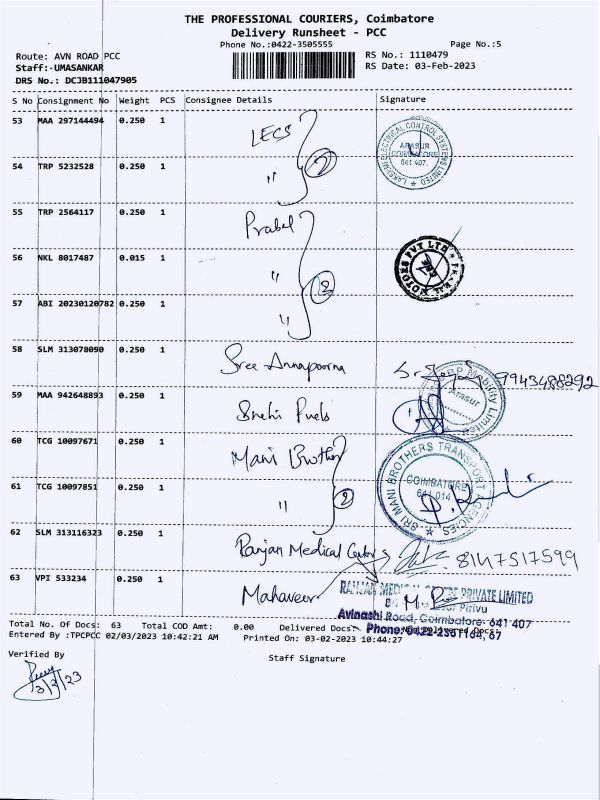 THE PROFESSIONAL COURIERS, Coimbatore
Delivery Runsheet - PCC
Phone No.:0422-3505555
Page No.:5
Route: AVN ROAD PCC
RS No.: 1110479
Staff:-UMASANKAR
RS Date: 03-Feb-2023
DRS No.: DCJB111047905
S No Consignment No Weight PCS Consignee Details Signature
53 MAA 297144494 0.250 1 LECS
LAKSHMI ELECTRICAL CONTROL SYSTEMS LIMITED
ARASUR
COIMBATORE
641 407.
54 TRP 5232528 0.250 1 " 2
55 TRP 2564117 0.250 1 Prabal
56 NKL 8017487 0.015 1 "
MOTORS PVT LTD
57 ABI 20230120782 0.250 1 "
58 SLM 313078090 0.250 1 Sree Annapoorna 9943488292
Mobility Limited
Arasur
59 MAA 942648893 0.250 1 Snehi Fuels
60 TCG 10097671 0.250 1 Mani Brother
SRI MANI BROTHERS TRANSPORT AGENCIES
COIMBATORE
641 014
61 TCG 10097851 0.250 1 " 2
62 SLM 313116323 0.250 1 Ranjan Medical 8147517599
63 VPI 533234 0.250 1 Mahaveer
PRIVATE LIMITED
Pirivu
Avinashi Road, Coimbatore- 641 407
Total No. Of Docs: 63 Total COD Amt: 0.00 Delivered Docs:
Entered By :TPCPCC 02/03/2023 10:42:21 AM Printed On: 03-02-2023 10:44:27
Verified By
Staff Signature
3/2/23